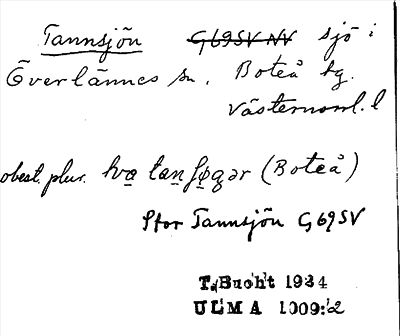 Tannsjön G69SV NV sjö i
Överlännes sn. Boteå tg.
Västernorrl. l
obest. plur. hva̱ taṉʃø̱gər (Boteå)
Stor Tannsjön G69SV
T. Bucht 1934
ULMA 1009:2